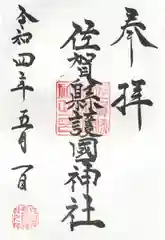 奉拝
佐賀縣護國神社
令和四年五月一日